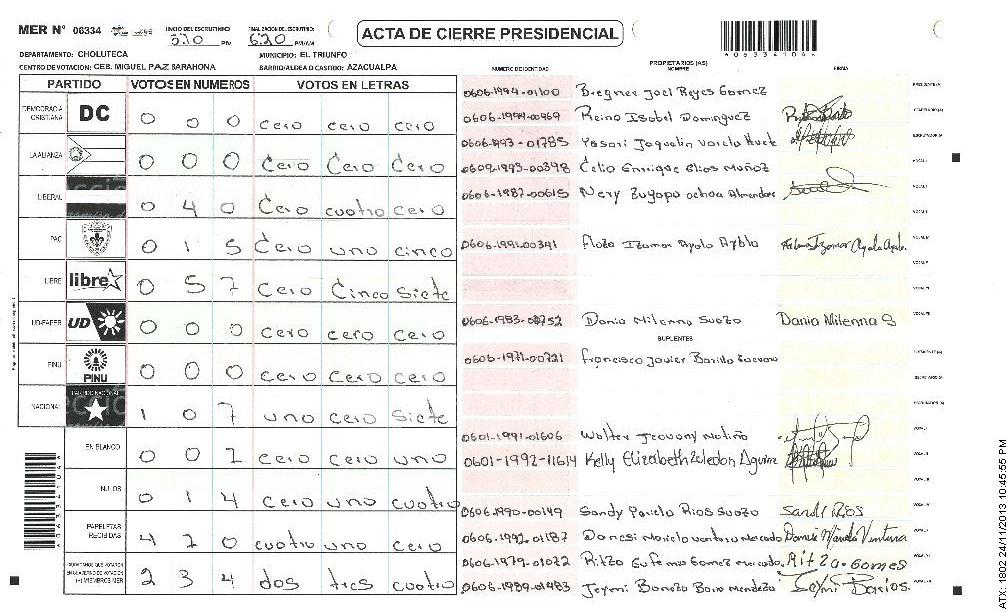 MER Nº 06334
INICIO DEL ESCRUTINIO: 5:20 PM
FINALIZACION DEL ESCRUTINIO: 6:20 PM/AM
ACTA DE CIERRE PRESIDENCIAL
DEPARTAMENTO: CHOLUTECA
MUNICIPIO: EL TRIUNFO
CENTRO DE VOTACION: CEB. MIGUEL PAZ BARAHONA
BARRIO/ALDEA O CASERIO: AZACUALPA
PARTIDO VOTOS EN NUMEROS VOTOS EN LETRAS
DEMOCRACIA CRISTIANA DC 0 0 0 cero cero cero
LA ALIANZA 0 0 0 Cero Cero Cero
LIBERAL 0 4 0 Cero cuatro cero
PAC 0 1 5 Cero uno cinco
LIBRE libre 0 5 7 Cero Cinco Siete
UD-FAPER UD 0 0 0 cero cero cero
PINU PINU 0 0 0 cero cero cero
NACIONAL PARTIDO NACIONAL 1 0 7 uno cero Siete
EN BLANCO 0 0 1 cero cero uno
NULOS 0 1 4 cero uno cuatro
PAPELETAS RECIBIDAS 4 1 0 cuatro uno cero
CIUDADANOS QUE VOTARON EN CUADERNO DE VOTACION (+) MIEMBROS MER 2 3 4 dos tres cuatro
NUMERO DE IDENTIDAD PROPIETARIOS (AS) NOMBRE FIRMA
0606-1994-01100 Bregner Joel Reyes Gomez
0606-1994-00969 Reino Isabel Dominguez
0606-1993-01785 Yasari Jaquelin Varela
0609-1993-00398 Celio Enrrique Elios Muñoz
0606-1987-00615 Nery ochoa
0606-1991-00391 Izamar Ayala
0606-1983-00752 Dania Milenna Suazo Dania Milenna S
SUPLENTES
0606-1971-00721 francisco Javier
0601-1991-01606 Walter Jeovany
0601-1992-11614 Kelly Elizabeth Zeledon Aguirre
0606-1990-00149 Sandy Rios Suazo Sandi Rios
0606-1992-01187 Mercado Ventura
0606-1979-01022 Gomez mercado. Ritza Gomes
0606-1989-01483 Jeymi Jeymi Barios.
4063341044
ATX: 1802 24/11/2013 10:45:55 PM